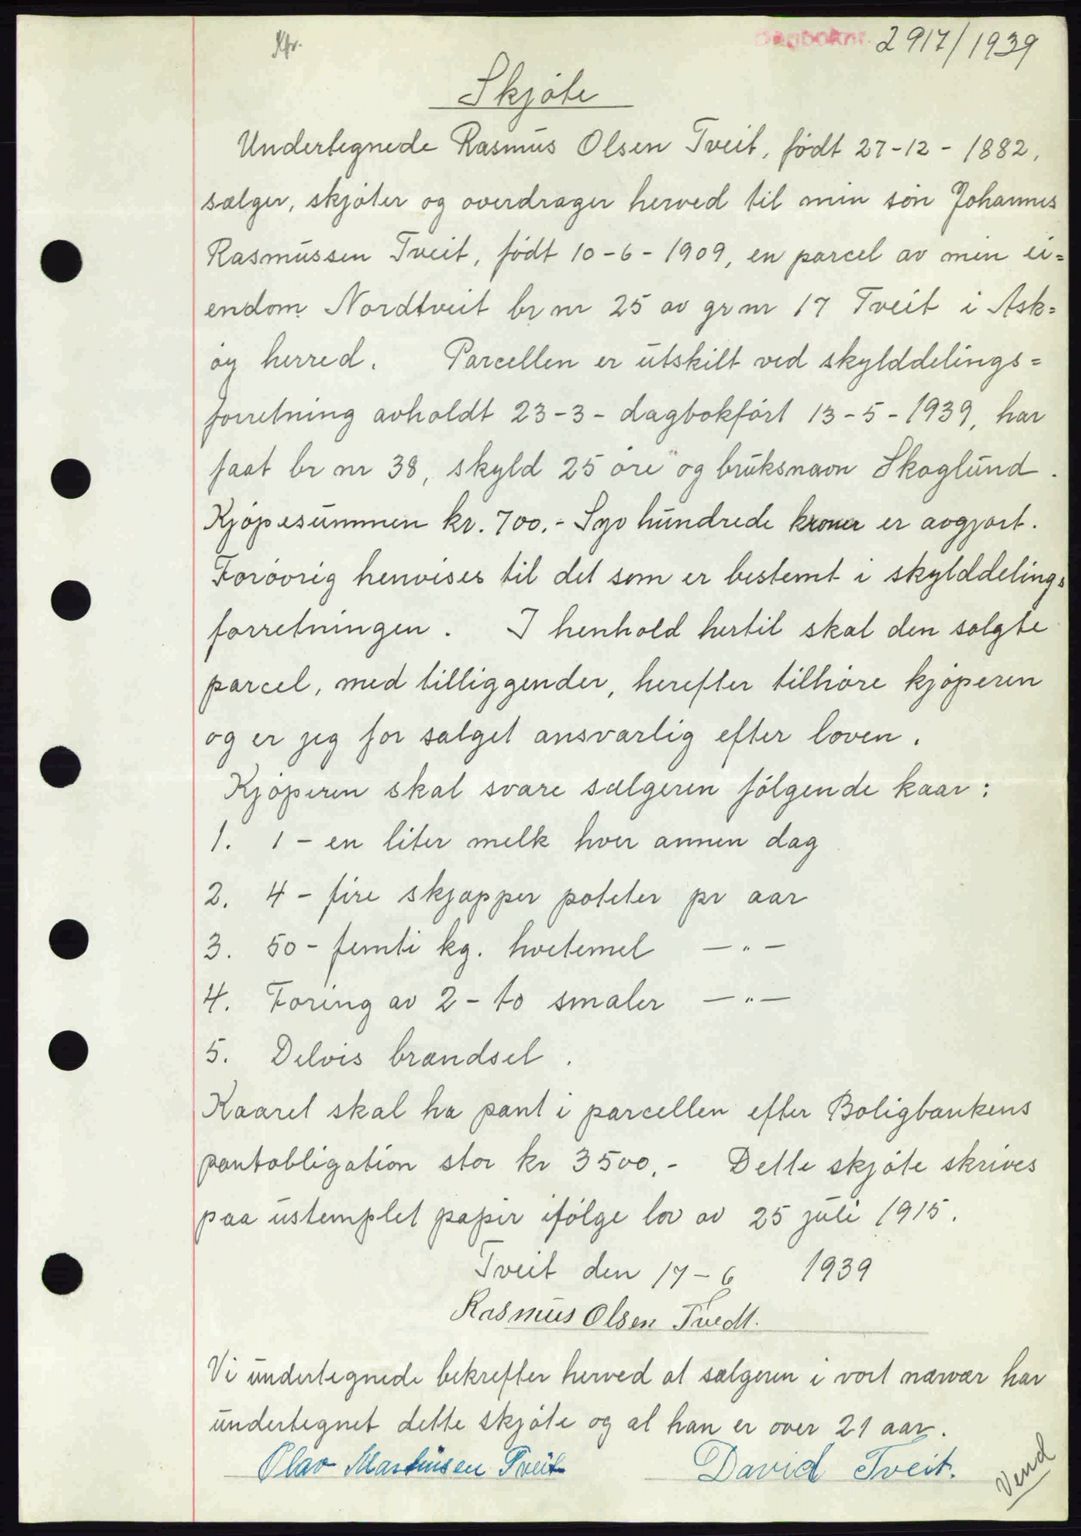 Kfr.
Dagboknr. 2917/1939
Skjöte
Undertegnede Rasmus Olsen Tveit, födt 27-12-1882,
sælger, skjöter og overdrager herved til min sön Johannes
Rasmussen Tveit, födt 10-6-1909, en parcel av min ei=
endom Nordtveit br nr 25 av gr nr 17 Tveit i Ask=
öy herred. Parcellen er utskilt ved skylddelings=
forretning avholdt 23-3- dagbokfört 13-5-1939, har
faat br nr 38, skyld 25 öre og bruksnavn Skoglund.
Kjöpesummen kr. 700,- Syv hundrede kroner er avgjort.
Forövrig henvises til det som er bestemt i skylddelings
forretningen. I henhold hertil skal den solgte
parcel, med tilliggender, herefter tilhöre kjöperen
og er jeg for salget ansvarlig efter loven.
Kjöperen skal svare sælgeren fölgende kaar:
1. 1 - en liter melk hver annen dag
2. 4 - fire skjæpper poteter pr aar
3. 50 - femti kg. hvetemel — " —
4. Foring av 2 - to smaler — " —
5. Delvis brændsel.
Kaaret skal ha pant i parcellen efter Boligbankens
pantobligation stor kr 3500,- Dette skjöte skrives
paa ustemplet papir ifölge lov av 25 juli 1915.
Tveit den 17-6 1939
Rasmus Olsen Tvedt.
Vi undertegnede bekrefter herved at sælgeren i vort nærvær har
undertegnet dette skjöte og at han er over 21 aar.
Olav Martinsen Tveit David Tveit.
Vend